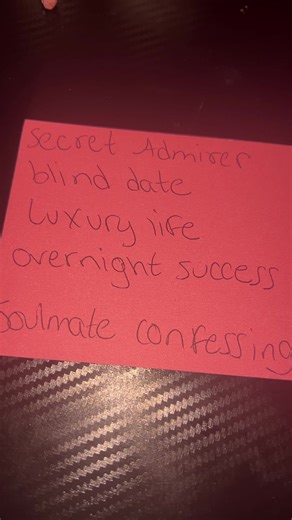 secret Admirer
blind date
Luxury life
overnight success
Soulmate confessing